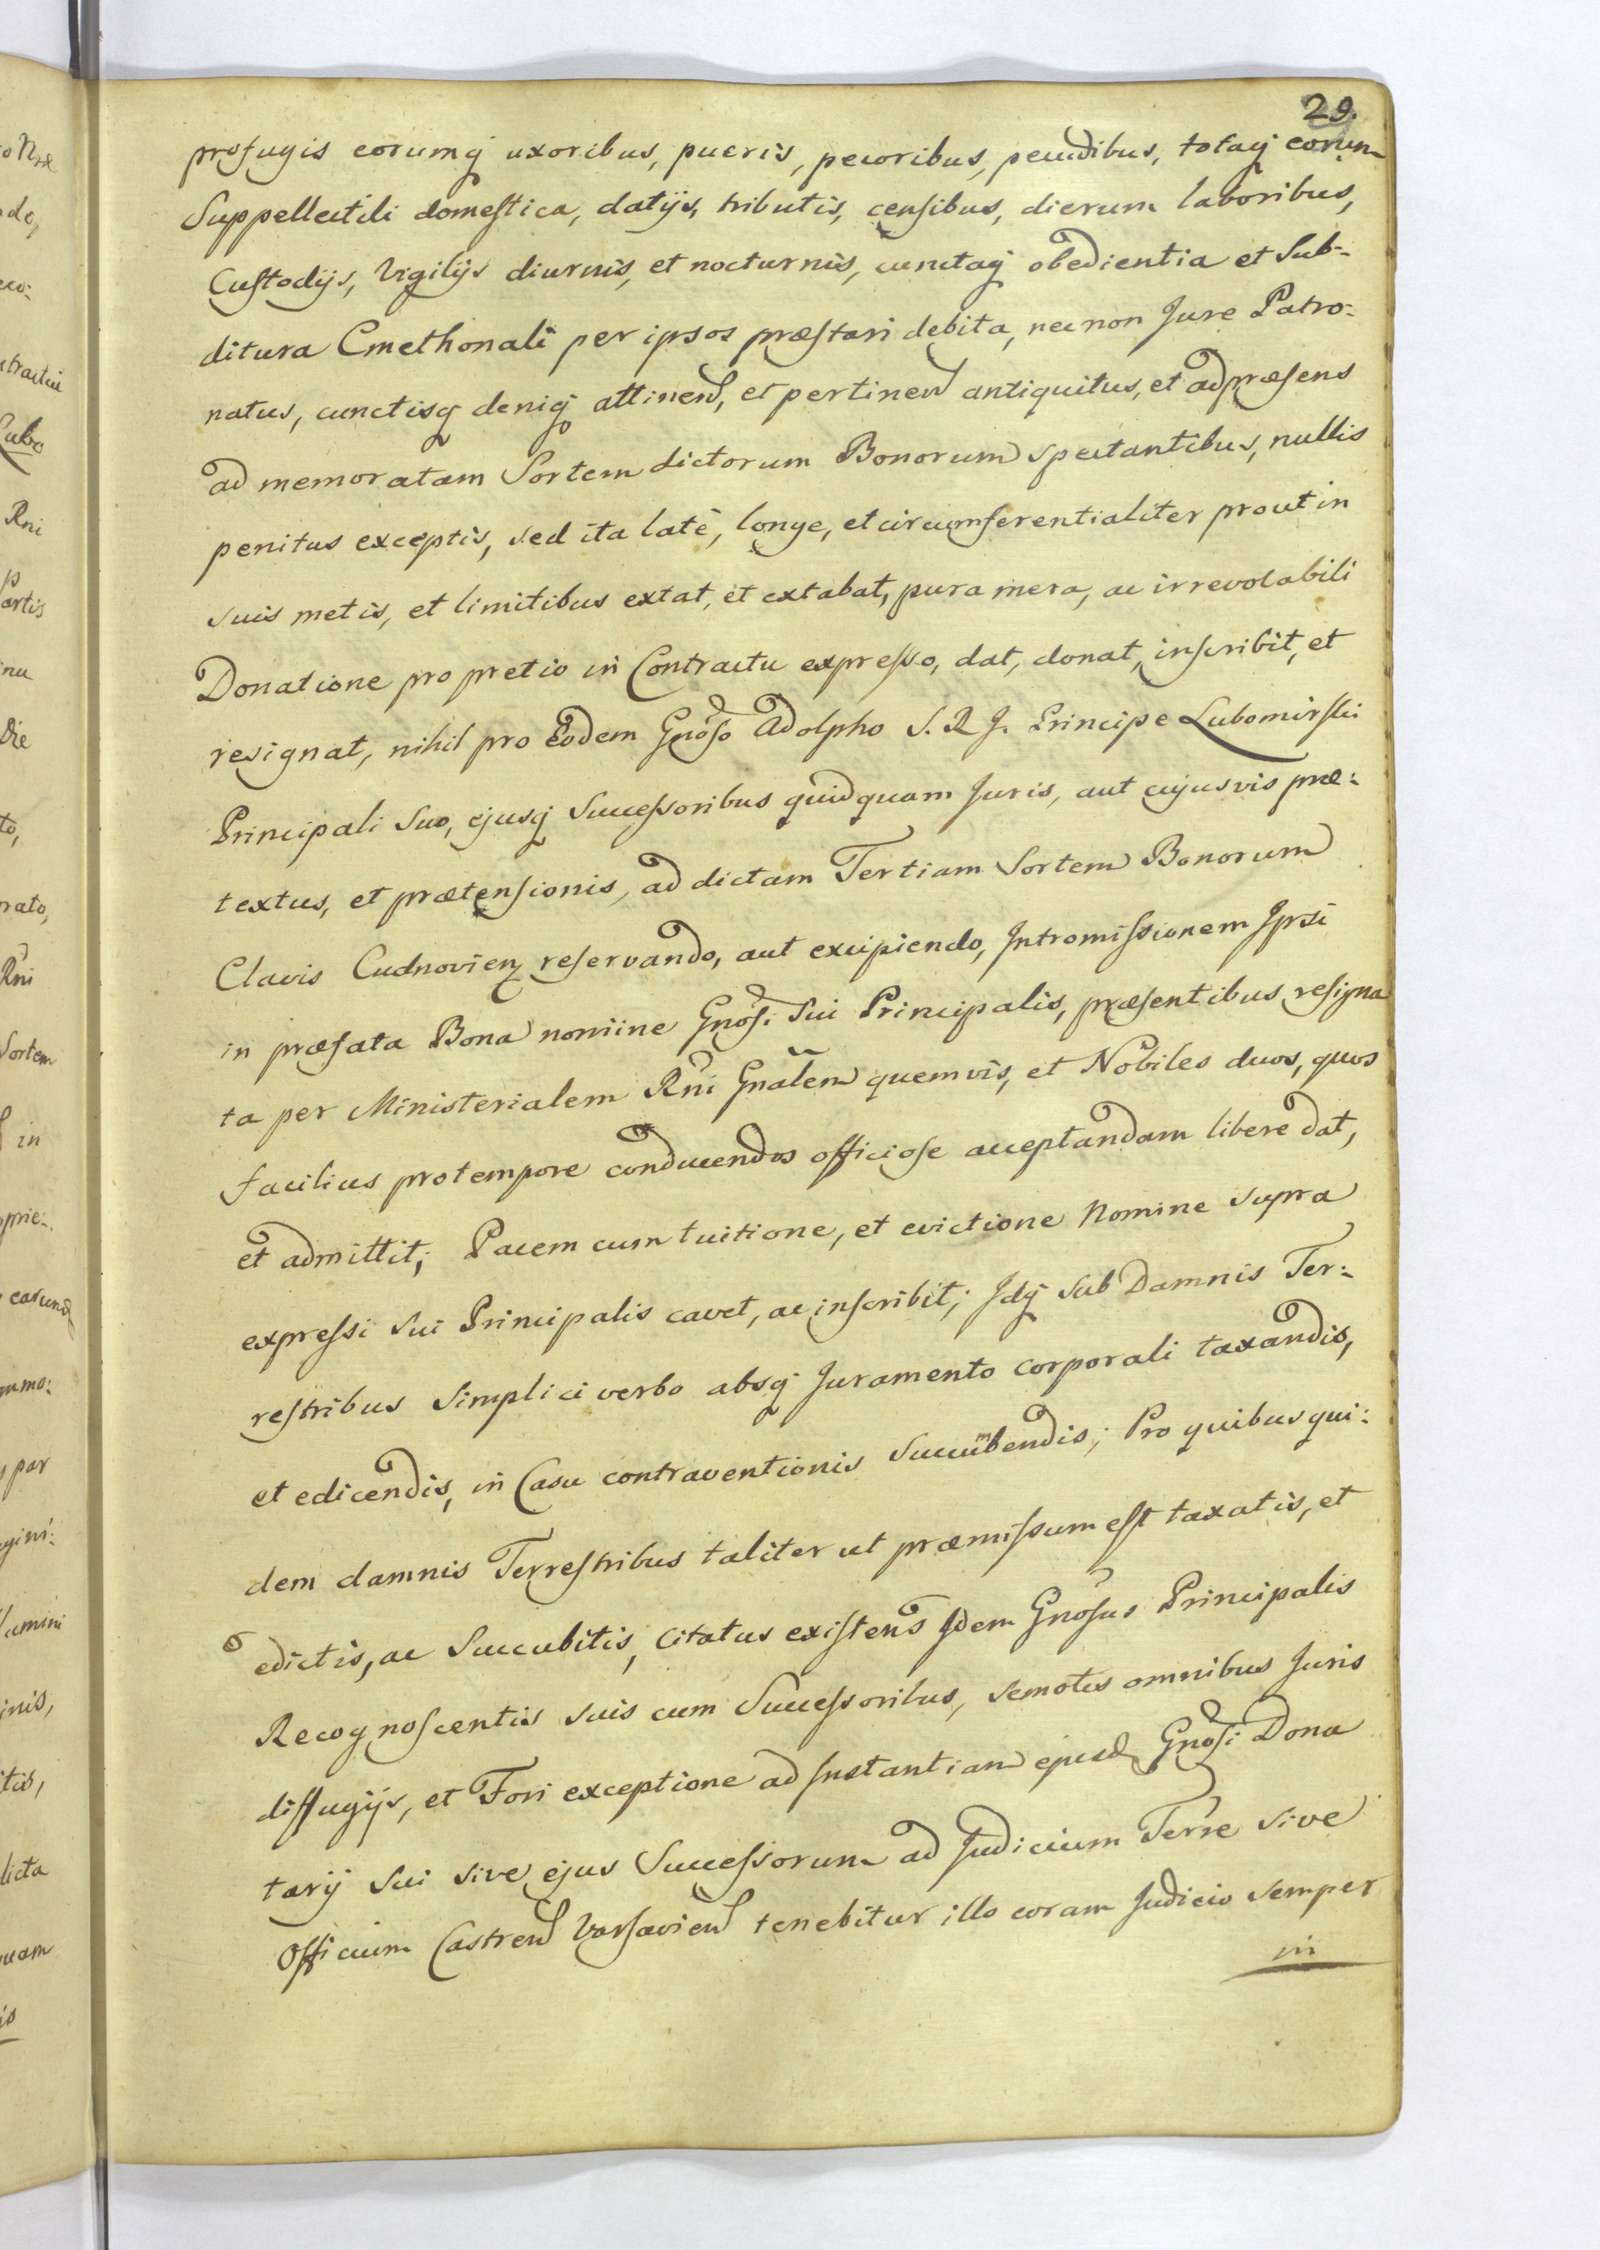 29.
profugis eorumq uxoribus, pueris, pecoribus, pecudibus, totaq eorum
Suppellectili domestica, datijs, tributis, censibus, dierum laboribus,
Custodijs, Vigilijs diurnis, et nocturnis, cunctaq obedientia et Sub-
ditura Cmethonali per ipsos præstari debita, nec non Jure Patro-
natus, cunctisq deniq attinen, et pertinen antiquitus, et ad præsens
ad memoratam Sortem dictorum Bonorum spectantibus, nullis
penitus exceptis, sed ita latè, longe, et circumferentialiter prout in
suis metis, et limitibus extat, et extabat, pura mera, ac irrevocabili
Donatione pro pretio in Contractu expresso, dat, donat, inscribit, et
resignat, nihil pro Eodem Gnoso Adolpho S. R. J. Principe Lubomirski
Principali Suo, ejusq Successoribus quidquam Juris, aut cujusvis præ-
textus, et prætensionis, ad dictam Tertiam Sortem Bonorum
Clavis Cudnovien reservando, aut excipiendo, Intromissionem Ipsi
in præfata Bona nomine Gnosi Sui Principalis, præsentibus resigna
ta per Ministerialem Rni Gnalem quemvis, et Nobiles duos, quos
facilius pro tempore conducendos officiose acceptandam libere dat,
et admittit; Pacem cum tuitione, et evictione Nomine supra
expressi Sui Principalis cavet, ac inscribit; Idq Sub Damnis Ter-
restribus Simplici verbo absq Juramento corporali taxandis,
et edicendis, in Casu contraventionis Succumbendis; Pro quibus qui-
dem damnis Terrestribus taliter ut præmissum est taxatis, et
edictis, ac Succubitis, Citatus existens Idem Gnosus Principalis
Recognoscentis suis cum Successoribus, semotis omnibus Juris
diffugijs, et Fori exceptione ad Instantiam ejusd Gnosi Dona
tarij Sui sive ejus Successorum ad Judicium Terre sive
Officium Castren Varsavien tenebitur illo coram Judicio semper
in